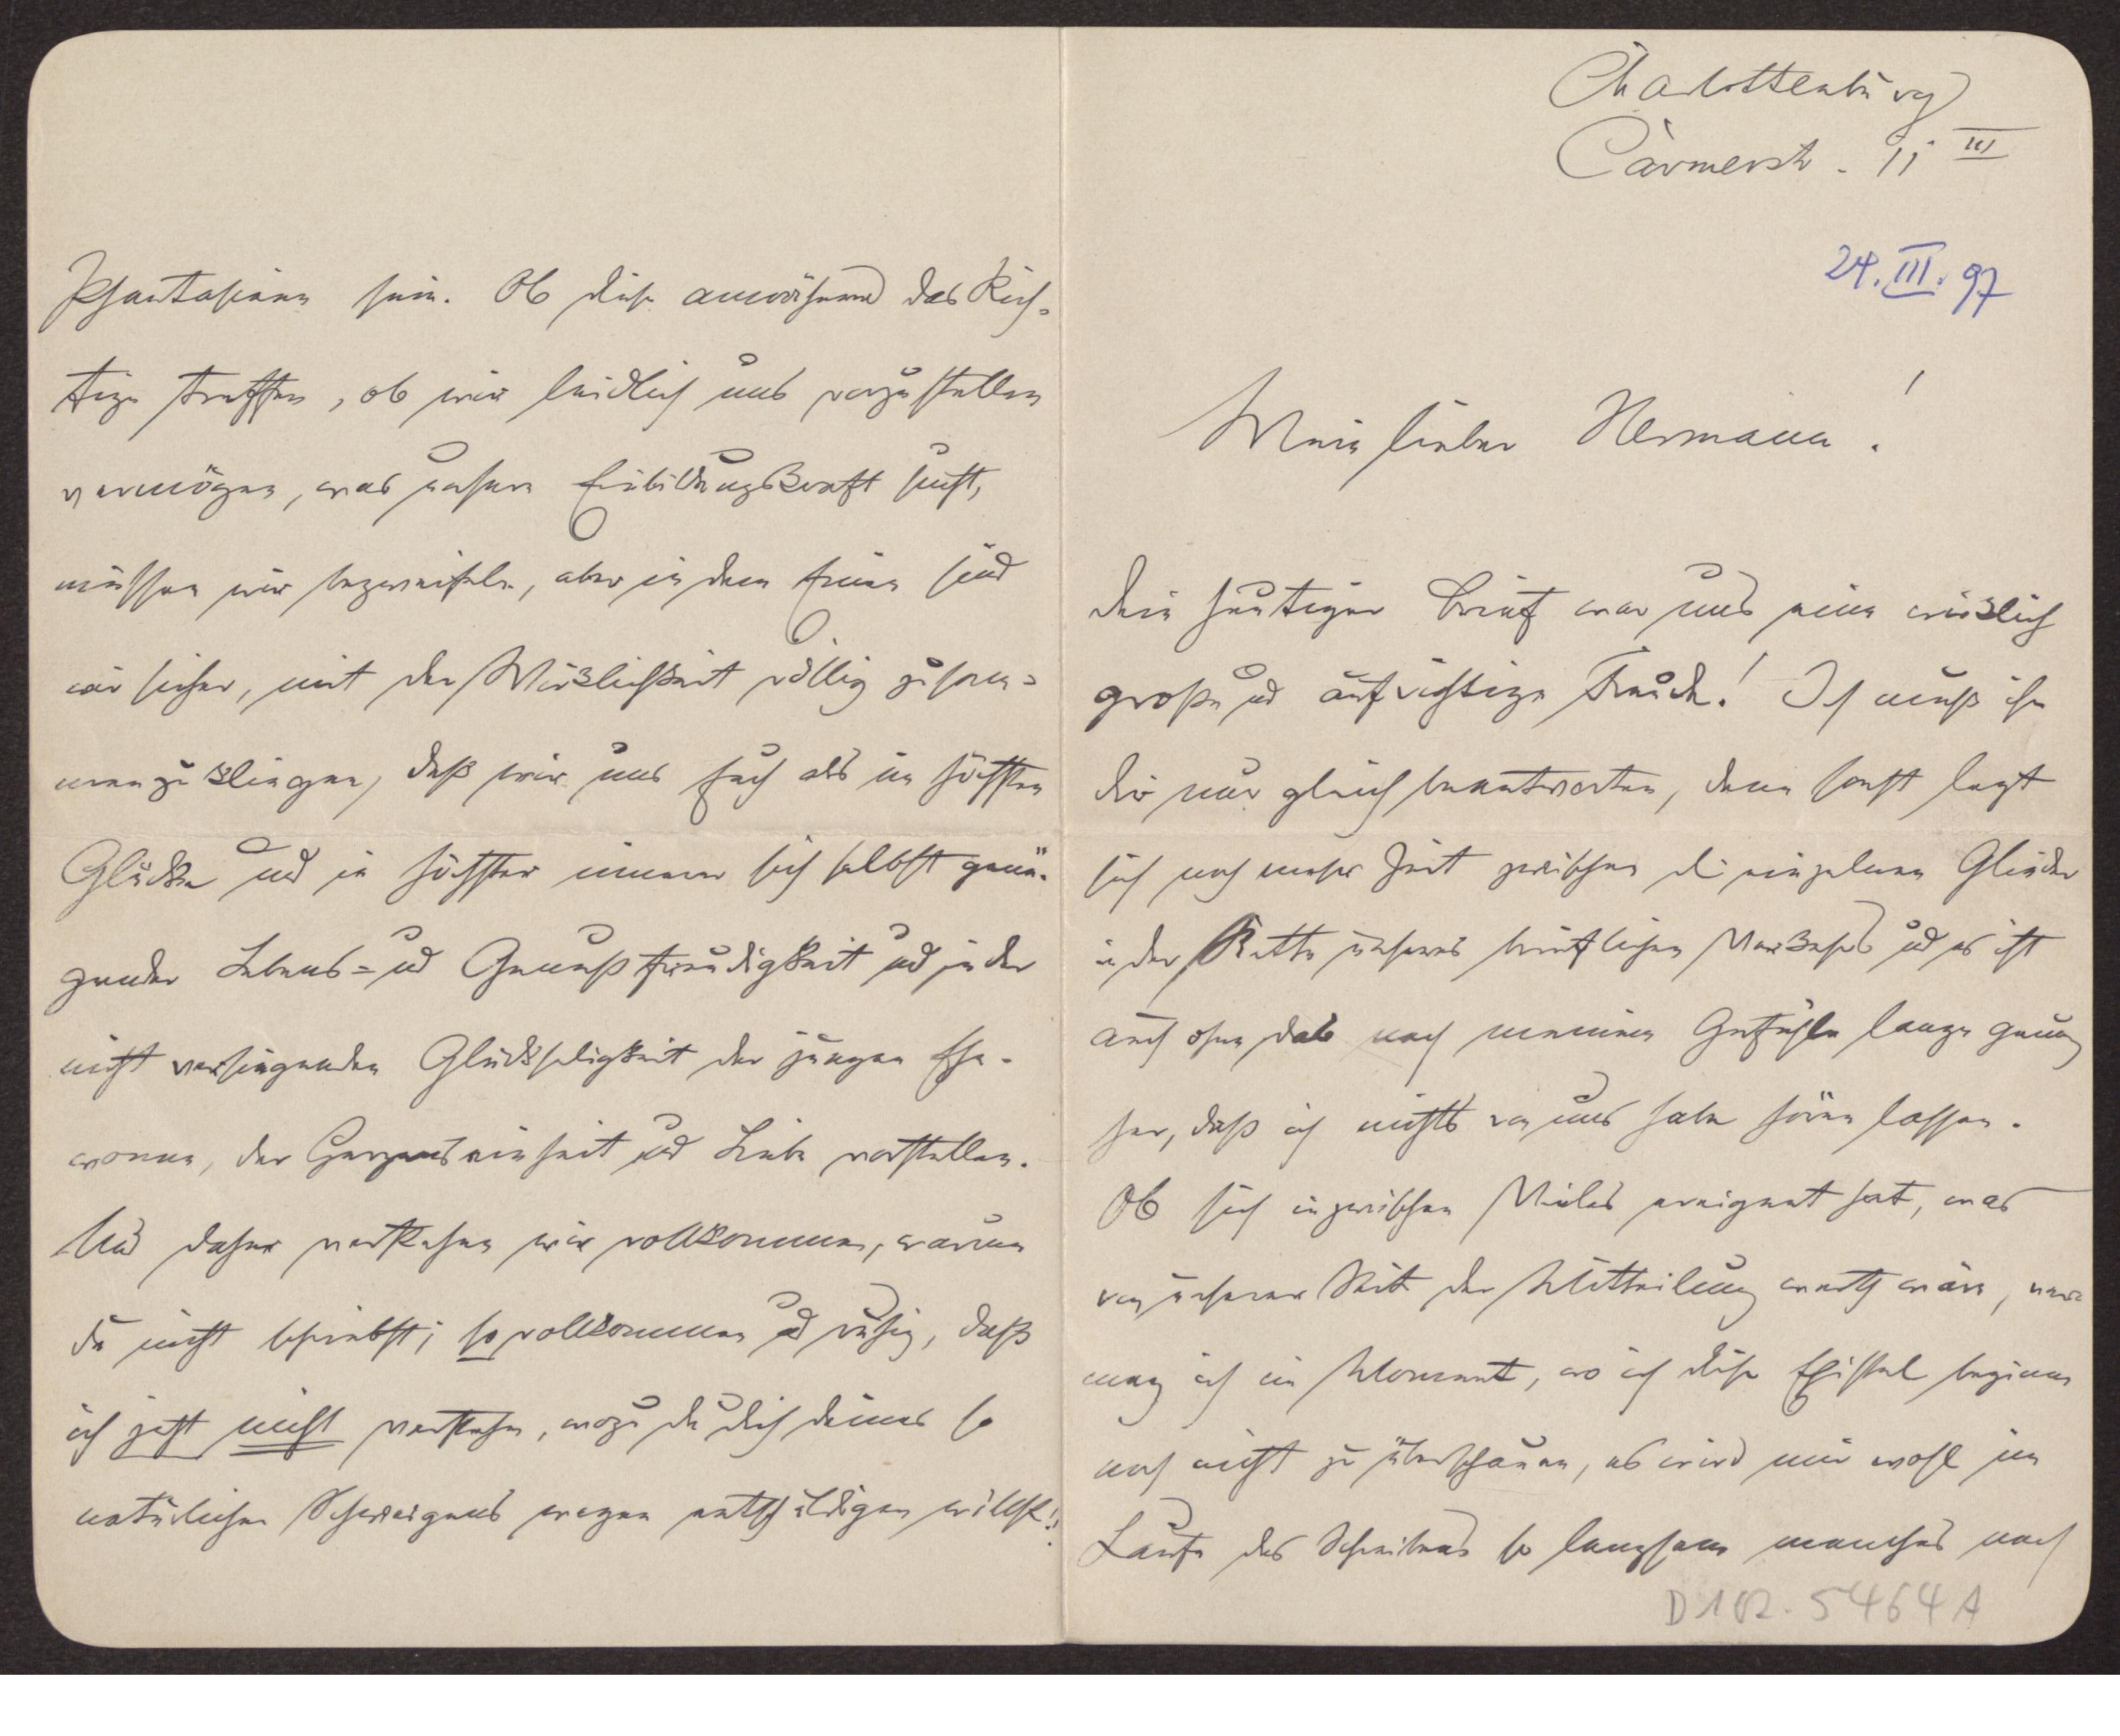 Charlottenburg
Carmerstr. 11 III
24. III. 97
Mein lieber Hermann!
dein heutiger Brief war uns eine wirklich
große und aufrichtige Freude! Ich muß ihn
dir nur gleich beantworten, denn sonst legt
sich noch mehr Zeit zwischen die einzelnen Glieder
in der Kette unseres brieflichen Verkehrs und es ist
auch ohne das nach meinem Gefühle lange genug
her, daß ich nichts von uns habe hören lassen.
Ob sich inzwischen Vieles ereignet hat, was
von unserer Seite der Mitteilung werth wäre, ver-
mag ich im Moment, wo ich diese Epistel beginne
noch nicht zu überschauen, es wird mir wohl im
Laufe des Schreibens so langsam manches nach
D 102. 5464 A
Phantasieen sein. Ob diese annähernd das Rich-
tige treffen, ob wir leidlich uns vorzustellen
vermögen, was unsere Einbildungskraft sucht,
müssen wir bezweifeln, aber in dem Einen sind
wir sicher, mit der Wirklichkeit völlig zusam-
menzuklingen, daß wir uns Euch als im höchsten
Glücke und in höchster innerer sich selbst genü-
gender Lebens- und Genußfreudigkeit und in der
nicht versiegenden Glückseligkeit der jungen Ehe-
wonne, der Herzenseinheit und Liebe vorstellen.
Und daher verstehen wir vollkommen, warum
du nicht schriebst; so vollkommen und ruhig, daß
ich jetzt nicht verstehe, wozu du dich deines so
natürlichen Schweigens wegen entschuldigen willst!